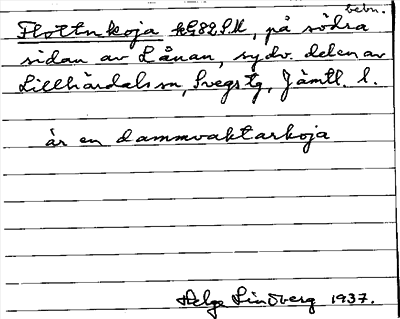 bebn.
Flottnkoja kG82SM, på södra
sidan av Lånan, sydv. delen av
Lillhärdals sn, Svegs tg, Jämtl. l.
är en dammvaktarkoja
Helge Lindberg 1937.